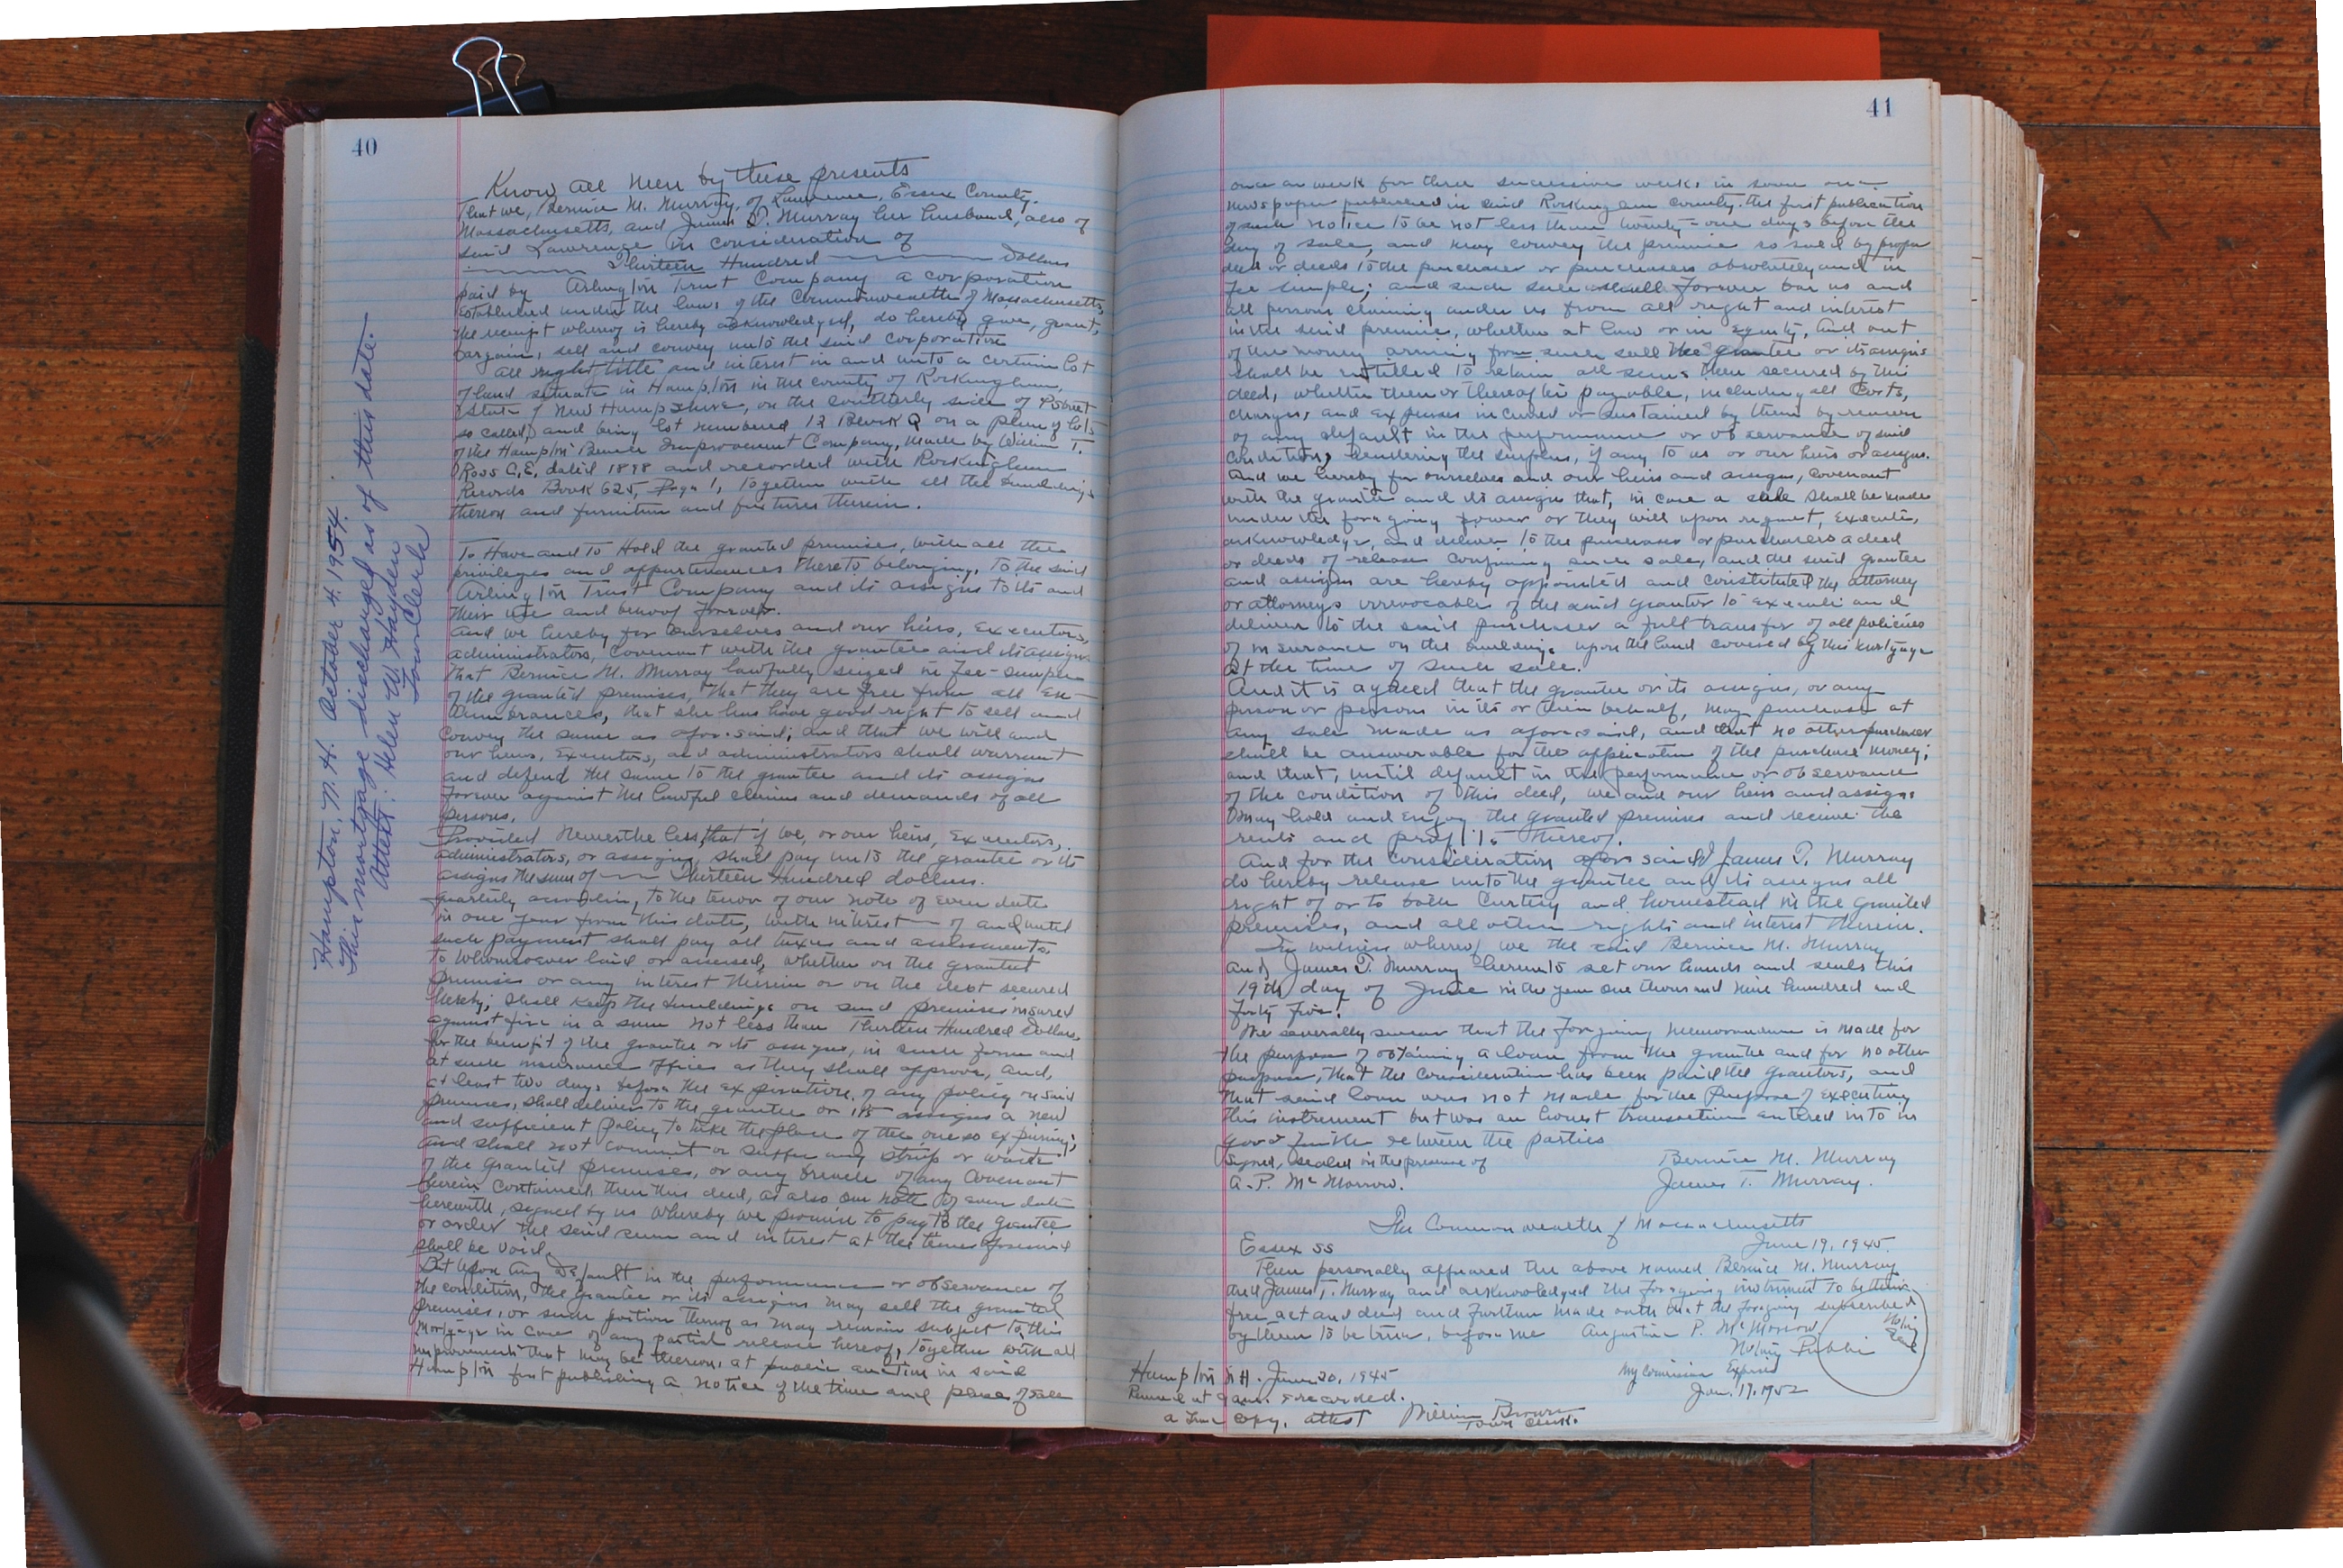 40
Know all Men by these presents
That we, Bernice M. Murray, of Lawrence, Essex County.
Massachusetts, and James T. Murray her husband, also of
said Lawrence in consideration of
Thirteen Hundred Dollars
paid by Arlington Trust Company a corporation
established under the laws of the Commonwealth of Massachusetts,
the receipt whereof is hereby acknowledged, do hereby give, grant,
bargain, sell and convey unto the said corporation
all right, title and interest in and unto a certain lot
of land situate in Hampton in the county of Rockingham,
State of New Hampshire, on the southerly side of P Street
so called, and being lot numbered 12 Block Q on a plan of lots
of the Hampton Beach Improvement Company, made by William T.
Ross C.E. dated 1898 and recorded with Rockingham
Records Book 625, Page 1, together with all the buildings
thereon and furniture and fixtures therein.
To Have and To Hold the granted premises, with all the
privileges and appurtenances thereto belonging, to the said
Arlington Trust Company and its assigns to its and
their use and behoof forever.
And we hereby for ourselves and our heirs, executors,
administrators, covenant with the grantee and its assigns
that Bernice M. Murray lawfully seized in fee-simple
of the granted premises, that they are free from all en-
cumbrances, that she has have good right to sell and
convey the same as aforesaid; and that we will and
our heirs, executors, and administrators shall warrant
and defend the same to the grantee and its assigns
forever against the lawful claims and demands of all
persons.
Provided Nevertheless, that if we, or our heirs, executors,
administrators, or assigns, shall pay unto the grantee or its
assigns the sum of Thirteen Hundred dollars.
quarterly according to the tenor of our note of even date
in one year from this date, with interest of and until
such payment shall pay all taxes and assessments,
to whomsoever laid or assessed, whether on the granted
premises or any interest therein or on the debt secured
hereby; shall keep the buildings on said premises insured
against fire in a sum not less than Thirteen Hundred Dollars
for the benefit of the grantee or its assigns, in such form and
at such insurance offices as they shall approve, and,
at least two days before the expiration of any policy on said
premises, shall deliver to the grantee or its assigns a new
and sufficient policy to take the place of the one so expiring;
and shall not commit or suffer any strip or waste
of the granted premises, or any breach of any covenant
herein contained, then this deed, as also our note of even date
herewith, signed by us whereby we promise to pay to the grantee
or order the said sum and interest at the times aforesaid
shall be void.
But Upon Any Default in the performance or observance of
the condition, the grantee or its assigns may sell the granted
premises, or such portion thereof as may remain subject to this
mortgage in case of any partial release hereof, together with all
improvements that may be thereon, at public auction in said
Hampton first publishing a notice of the time and place of sale
Hampton, N.H. October 4, 1954.
This mortgage discharged as of this date.
Attest: Helen W. Hayden
Town Clerk
41
once a week for three successive weeks in some one
newspaper published in said Rockingham county. the first publication
of such notice to be not less than twenty-one days before the
day of sale, and may convey the premise so sold by proper
deed or deeds to the purchaser or purchasers absolutely and in
fee simple; and such sale shall forever bar us and
all persons claiming under us from all right and interest
in the said premise, whether at law or in equity, And out
of the money arising from such sale the grantee or its assigns
shall be entitled to retain all sums then secured by this
deed, whether then or thereafter payable, including all costs,
charges, and expenses incurred or sustained by them by reason
of any default in the performance or observance of said
condition, rendering the surplus, if any to us or our heirs or assigns.
And we hereby for ourselves and our heirs and assigns, covenant
with the grantee and its assigns that, in case a sale shall be made
under the foregoing power or they will upon request, execute,
acknowledge, and deliver to the purchaser or purchasers a deed
or deeds of release confirming such sale, and the said grantee
and assigns are hereby appointed and constituted the attorney
or attorneys irrevocable of the said grantor to execute and
deliver to the said purchaser a full transfer of all policies
of insurance on the buildings upon the land covered by this mortgage
at the time of such sale.
And it is agreed that the grantee or its assigns, or any
person or persons in its or their behalf, may purchase at
any sale made as aforesaid, and that no other purchaser
shall be answerable for the application of the purchase money;
and that, until default in the performance or observance
of the condition of this deed, we and our heirs and assigns
may hold and enjoy the granted premises and receive the
rents and profits thereof.
And for the consideration afore said I James T. Murray
do hereby release unto the grantee and its assigns all
right of or to both Curtesy and homestead in the granted
premises, and all other rights and interest therein.
In witness whereof we the said Bernice M. Murray
and James T. Murray hereunto set our hands and seals this
19th day of June in the year one thousand nine hundred and
forty five.
We severally swear that the foregoing memorandum is made for
the purpose of obtaining a loan from the grantee and for no other
purpose, that the consideration has been paid the grantors, and
that said loan was not made for the purpose of executing
this instrement but was an honest transaction entered into in
good faith between the parties
Signed, sealed in the presence of Bernice M. Murray
A. P. McMorrow. James T. Murray.
The Commonwealth of Massachusetts
Essex ss June 19, 1945.
Then personally appeared the above named Bernice M. Murray
and James T. Murray and acknowledged the foregoing instrument to be their
free act and deed and further made oath that the foregoing subscribed
by them to be true, before me Augustine P. McMorrow
Notary Public
Notary Seal
My Commission Expires
Jan. 19, 1952
Hampton N.H. June 20, 1945
Received at 9 a.m. & recorded.
a true copy, attest William Brown
Town Clerk.